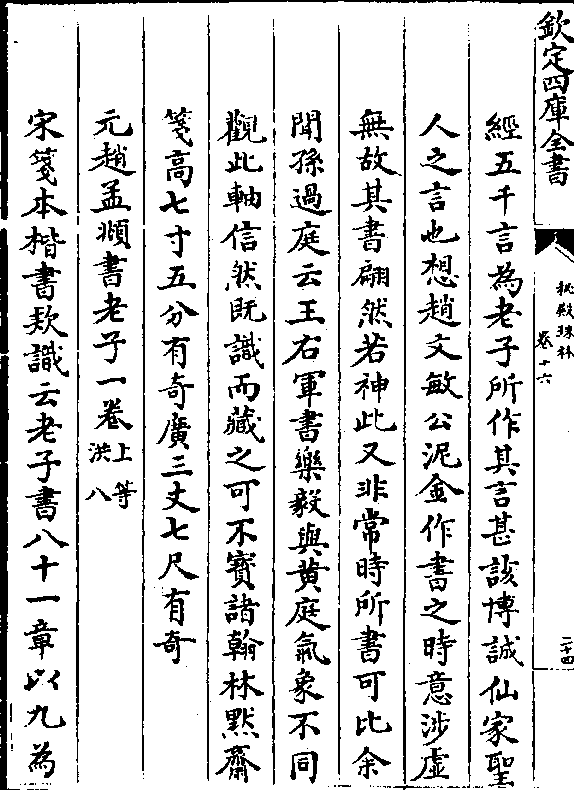 欽定四庫全書
秘殿珠林
卷十六
二十四
經五千言為老子所作其言甚該博誠仙家聖
人之言也想趙文敏公泥金作書之時意涉虛
無故其書翩然若神此又非常時所書可比余
聞孫過庭云王右軍書樂毅與黄庭氣象不同
觀此軸信然既識而藏之可不寶諸翰林默齋
箋高七寸五分有奇廣三丈七尺有奇
元趙孟頫書老子一卷上等洪八
宋箋本楷書欵識云老子書八十一章以九為